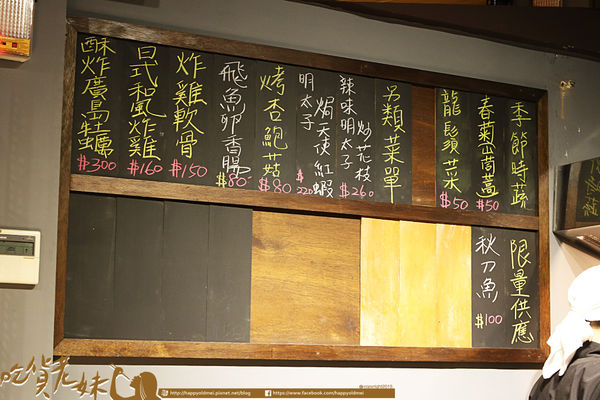 季節時蔬
春菊山茼蒿
$50
龍鬚菜
$50
另類菜單
辣味明太子
炒花枝
$260
明太子
焗天使紅蝦
$220
烤杏鮑菇
$80
飛魚卵香腸
$80
炸雞軟骨
$150
日式和風炸雞
$160
酥炸廣島牡蠣
$300
限量供應
秋刀魚
$100
吃貨老妹
http://happyoldmei.pixnet.net/blog
https://www.facebook.com/happyoldmei
copyright2015